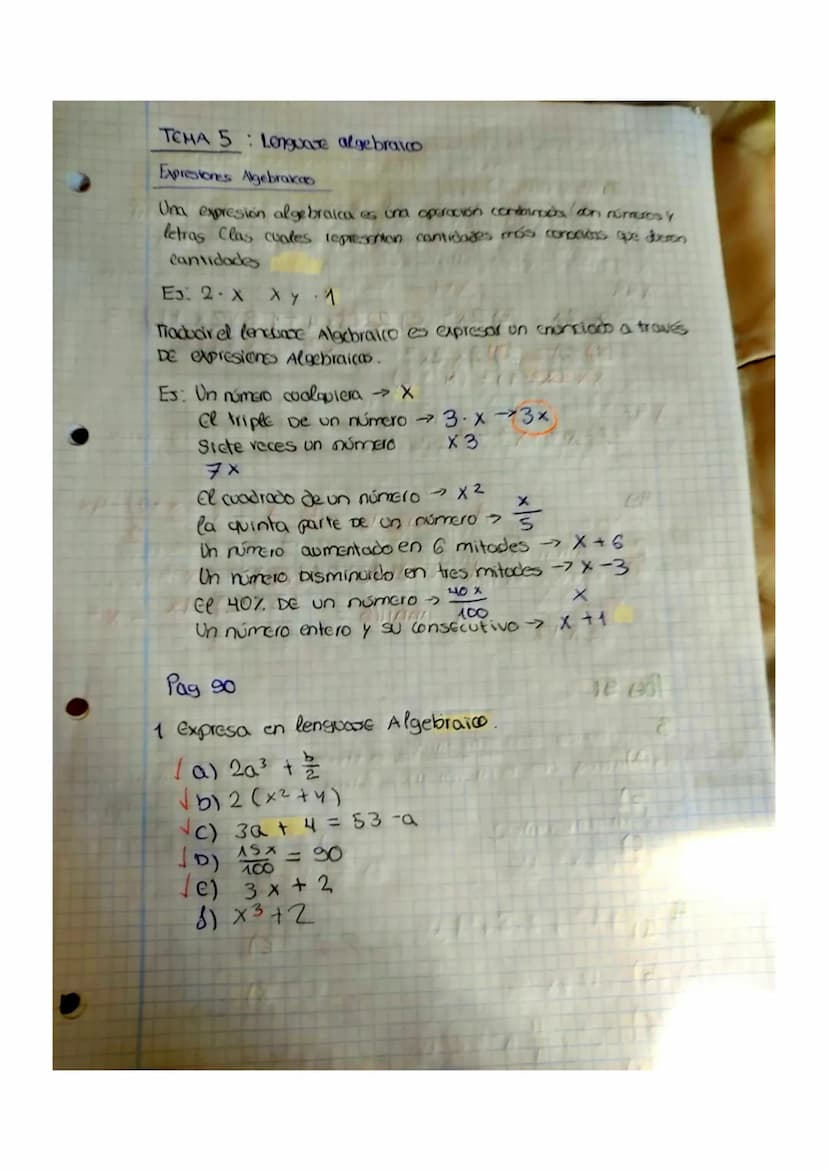 TEMA 5 : Lenguaje algebraico
Expresiones Algebraicas
Una expresión algebraica es una operación combinada con números y
letras (las cuales representan cantidades más que
cantidades
Ej: 2 · x x y · 1
Traducir el lenguaje Algebraico es expresar un enunciado a través
DE expresiones Algebraicas.
Ej: Un número cualquiera → x
El triple DE un número → 3 · x → 3x
Siete veces un número x3
7x
El cuadrado de un número → x²
la quinta parte DE un número → x/5
Un número aumentado en 6 mitades → x + 6
Un número Disminuido en tres mitades → x - 3
El 40% DE un número → 40x/100 x
Un número entero y su consecutivo → x + 1
Pag 90
1 Expresa en lenguaje Algebraico.
a) 2a³ + b/2
b) 2 (x² + y)
c) 3a + 4 = 53 - a
D) 15x/100 = 90
e) 3x + 2
f) x³ + 2